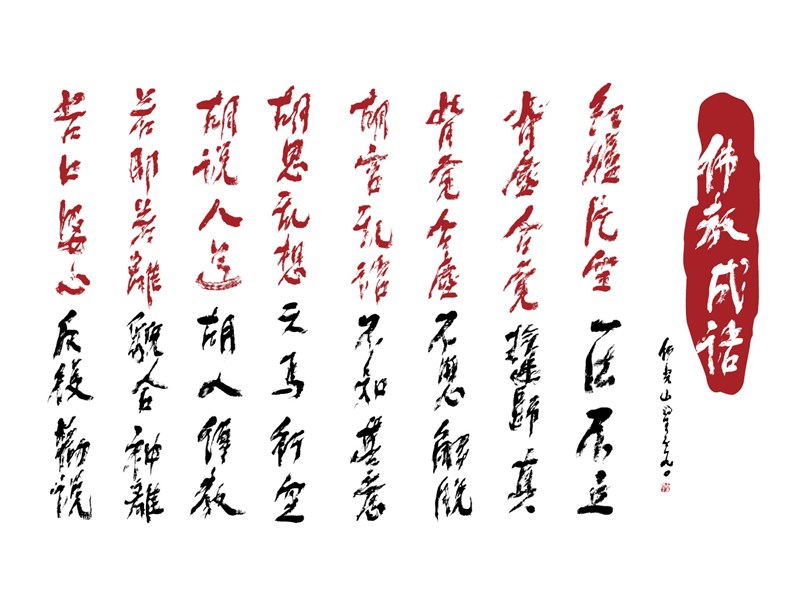 佛教成語
佛光山星雲
空 一法不立
背塵合覺 捨迷歸真
背覺合塵 不思解脫
胡言亂語 不知
胡思亂想 天馬行空
胡說人道 胡人傳教
若即若離 貌合神離
苦口婆心 反復勸說